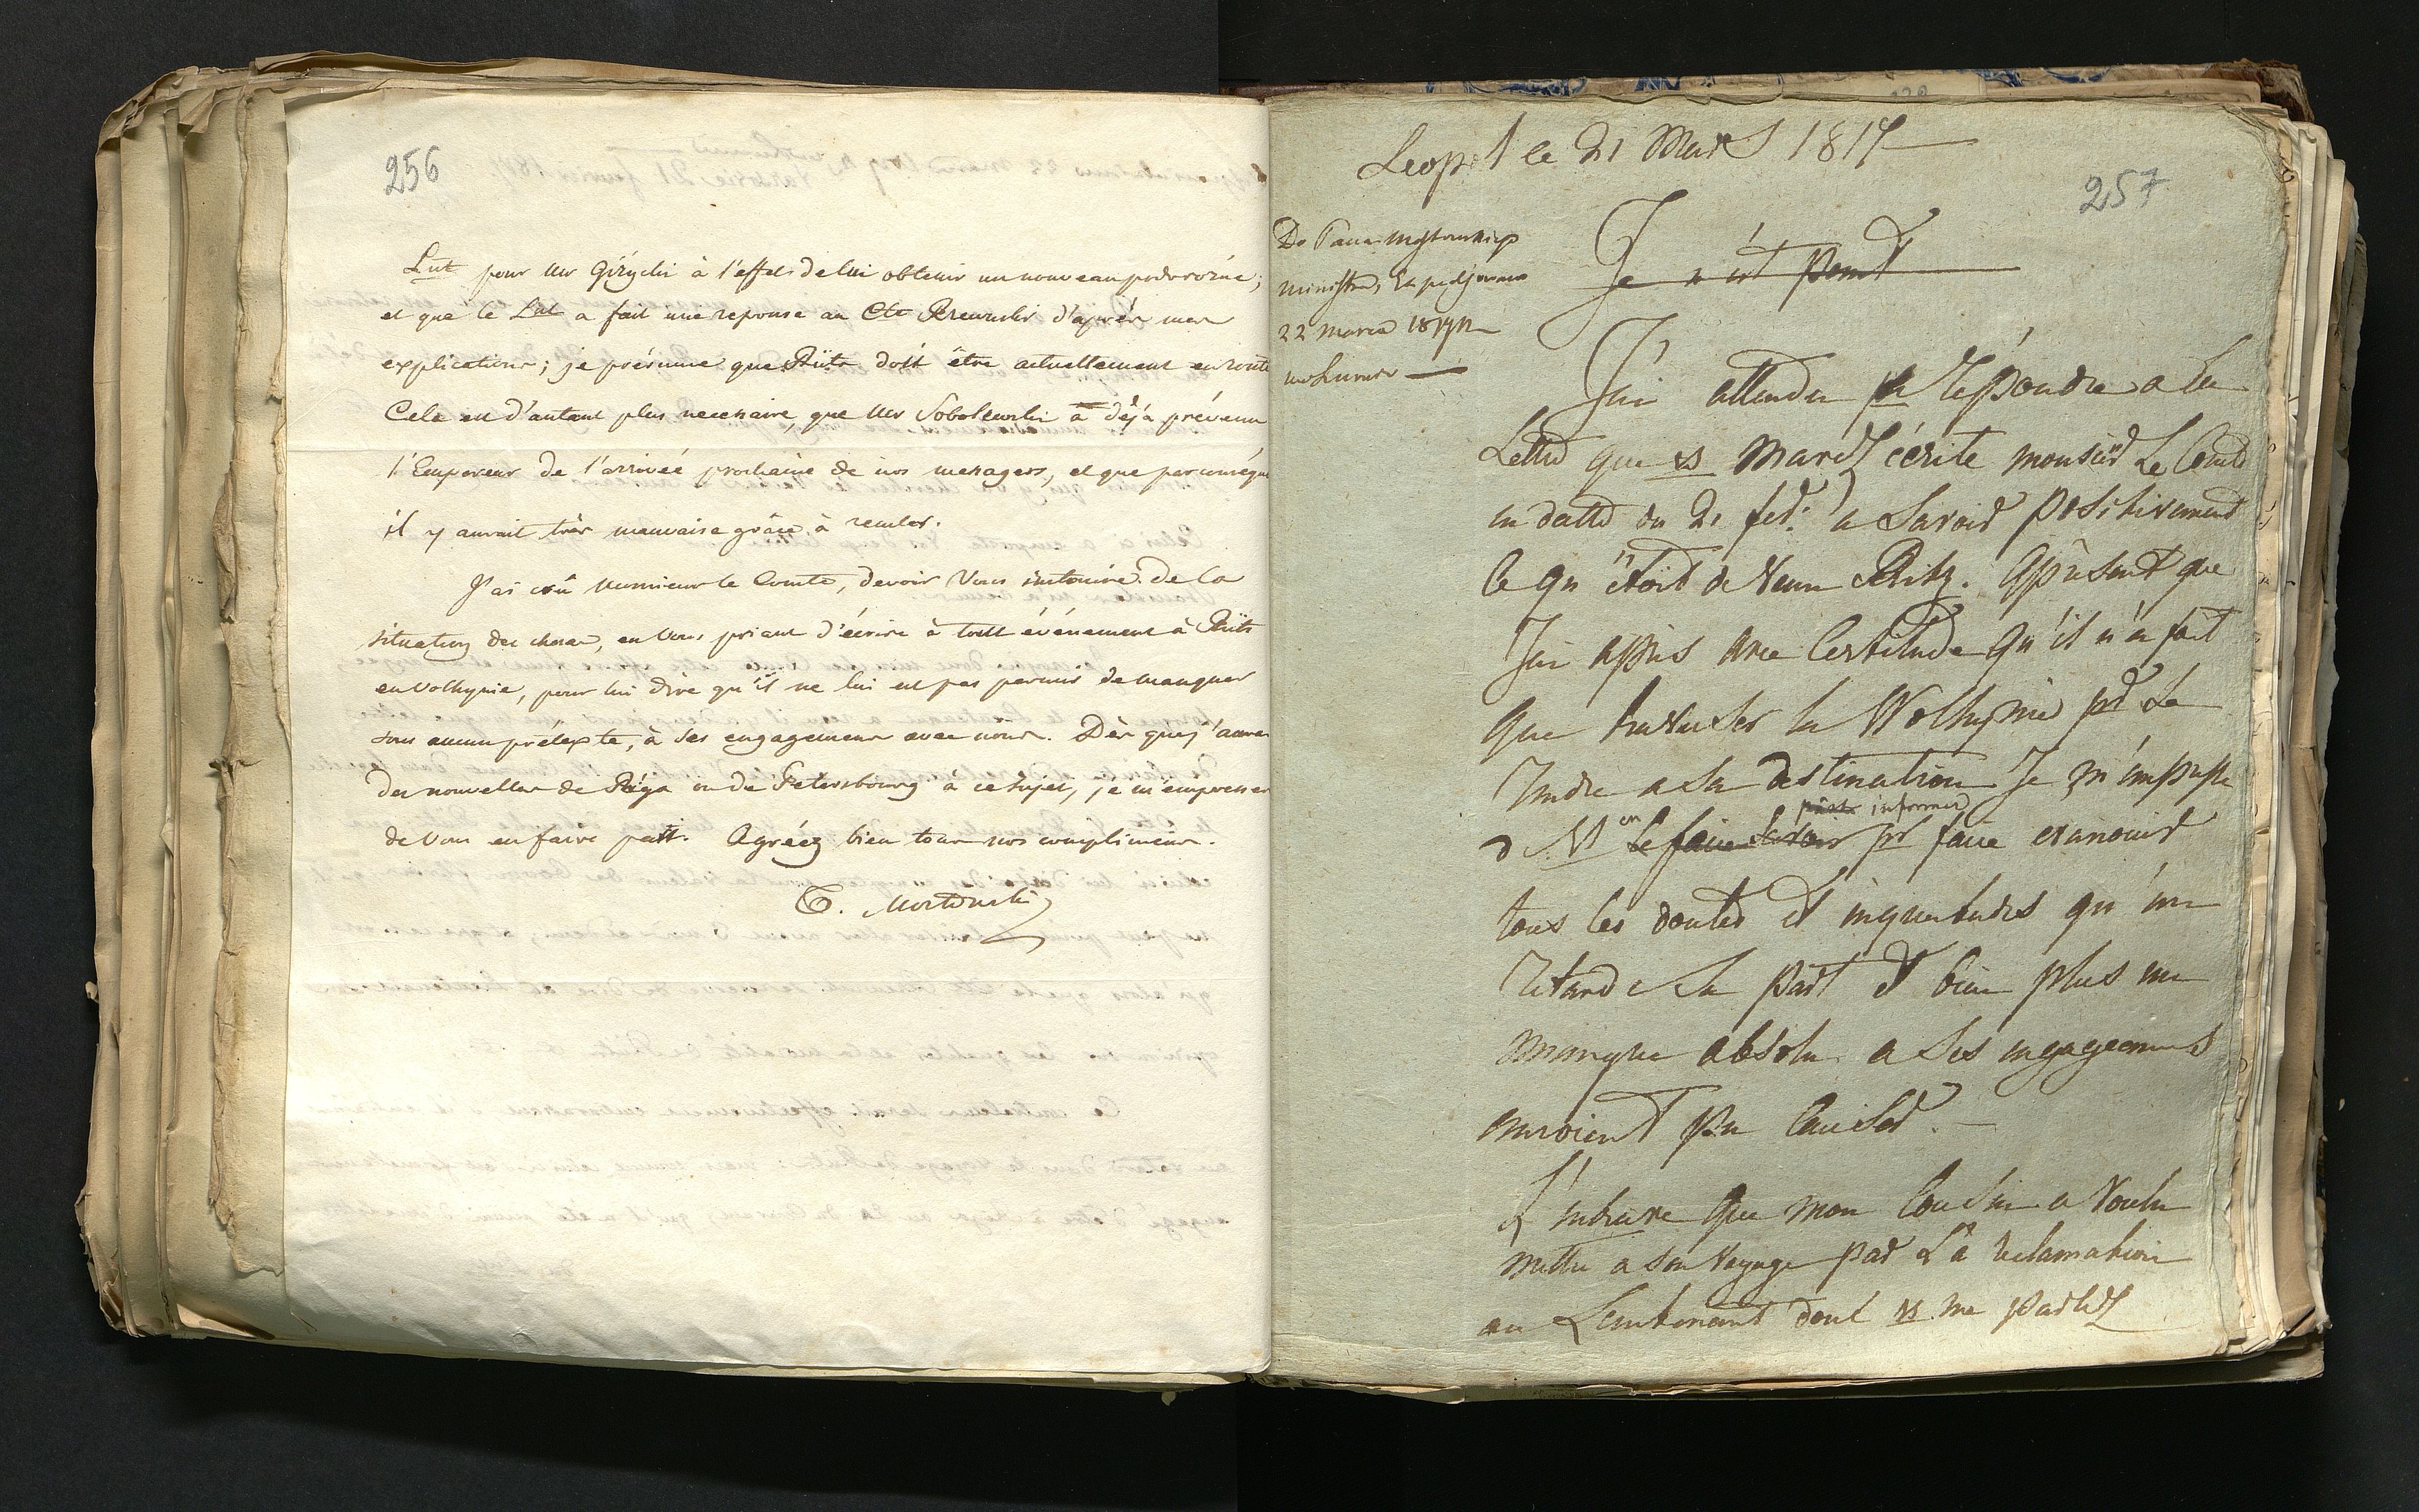 256
Lnt pour Mr Giżycki à l'effet de lui obtenir un nouveau podorożna;
et que le Lnt a fait une reponse au Cte Rzewuski d'après mes
explications; je présume que Rüts doit être actuellement en route
Cela est d'autant plus necessaire, que Mr Sobolewski a déjà prévenu
l'Empereur de l'arrivéé prochaine de nos messagers, et que par conséqu
il y aurait très mauvaise grâce à reculer.
J'ai crû Monsieur le Comte, devoir Vous instruire de la
situation des choses, en Vous priant d'écrire à tout événement à Rüts
en Volhynie, pour lui dire qu'il ne lui est pas permis de manquer
sous aucun prétexte, à ses engagemens avec nous. Dès que j'aurai
des nouvelles de Riga ou de Petersbourg à ce sujet, je m'empresser
de Vous en faire part. Agréez bien tous nos complimens.
T. Mostowski
257
Leopol le 21 Mars 1817
Do Pana Mostowskiego
Ministra, Expedjowano
22 marca 1817
Je n'ét point
J'ai attendu pr repondre a la
Lettre que vs m'avez écrite monsieur Le Comte
en datte du 21 fevr: a savoir positivement
ce qu'étoit devenu Ritz. Apresent que
J'ai appris avec Certitude qu'il n'a fait
que traverser la Wolhynie pr se
rendre a sa destination Je m'empresse
d Vs en informer
le faire savoir pr faire evanouir
tous les doutes et inquietudes qu'un
retard de sa part et bien plus un
manque absolu a ses engagemens
auroient pu causer. —
L'entrave que mon Cousin a voulu
mettre a son voyage par la reclamation
au Lieutenant dont vs me parlez